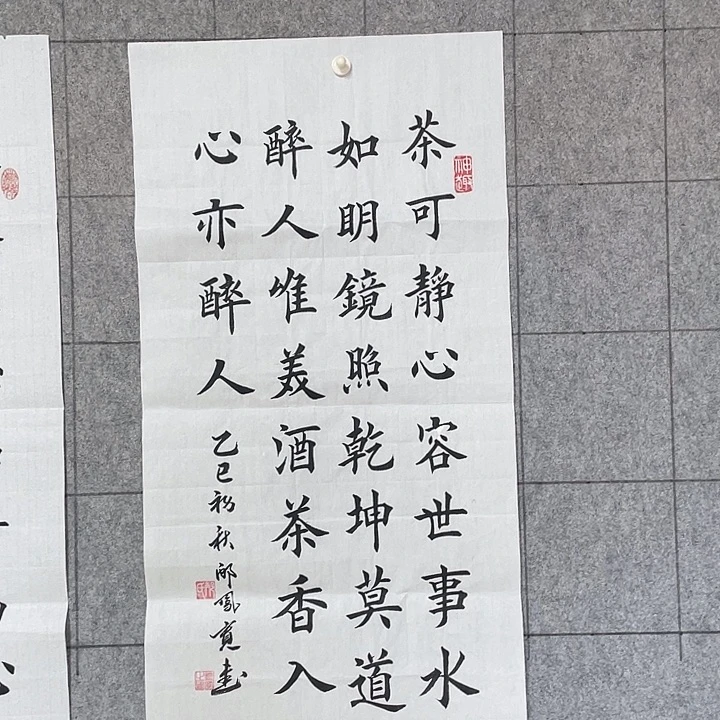 茶可静心容世事水
如明镜照乾坤莫道
醉人唯美酒茶香入
心亦醉人
乙巳初秋邴凤宽书